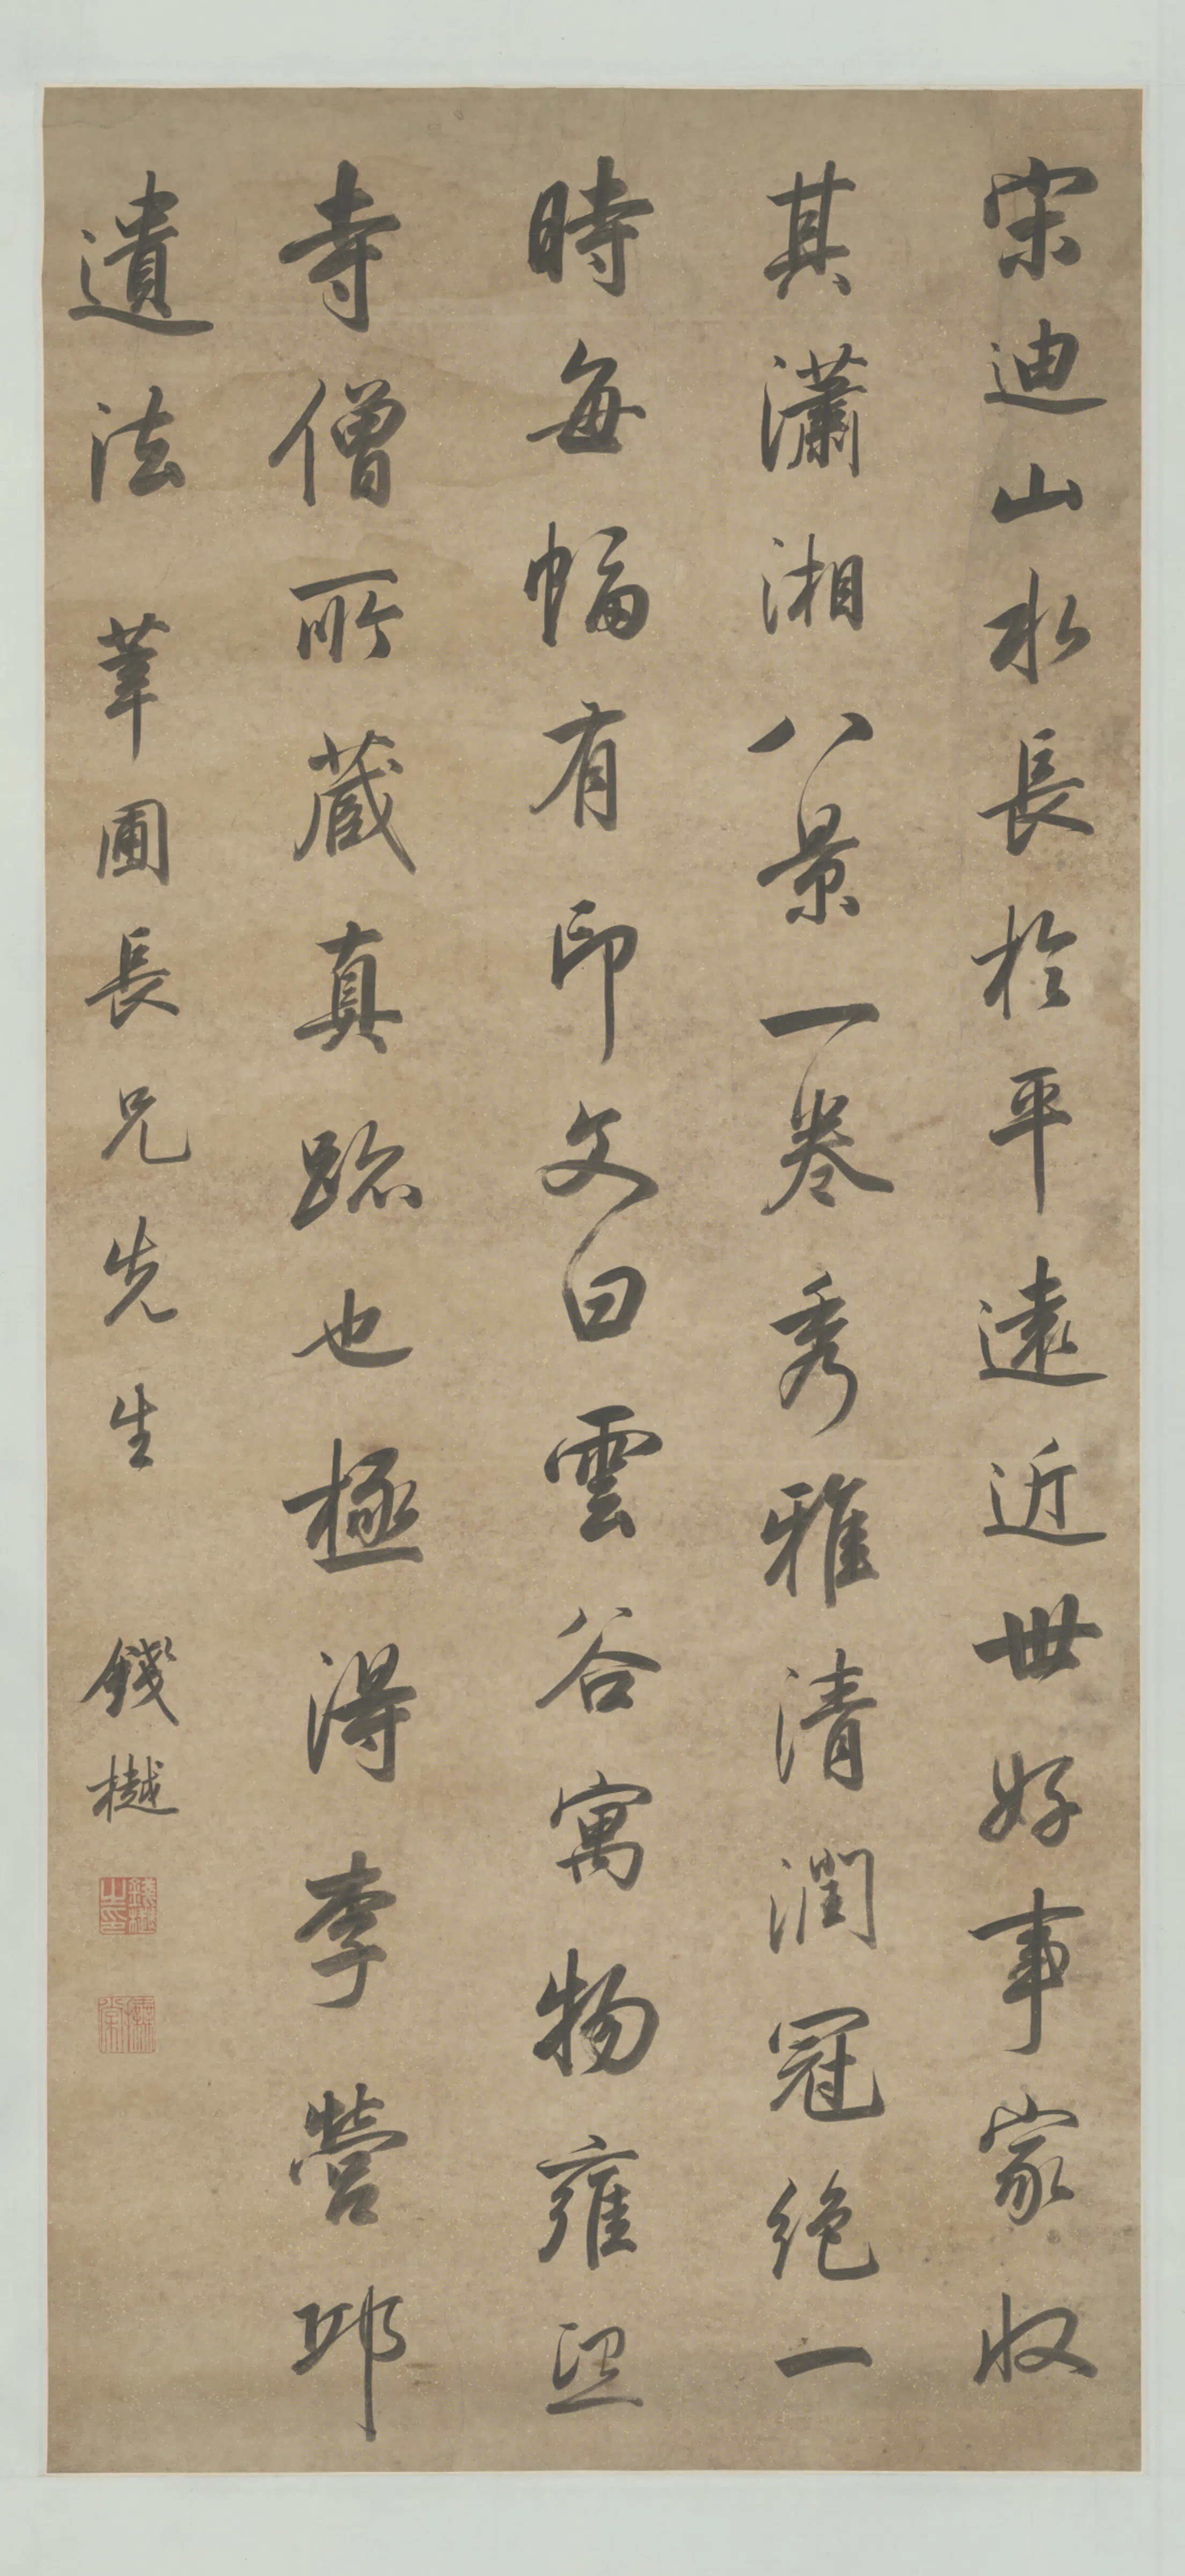 宋迪山水長於平遠近世好事家収
其瀟湘八景一卷秀雅清潤冠絶一
時每幅有印文曰雲谷寓物雍熙
寺僧所蔵真跡也極得李營邱
遺法 葦圃長兄先生 錢樾
錢樾之印